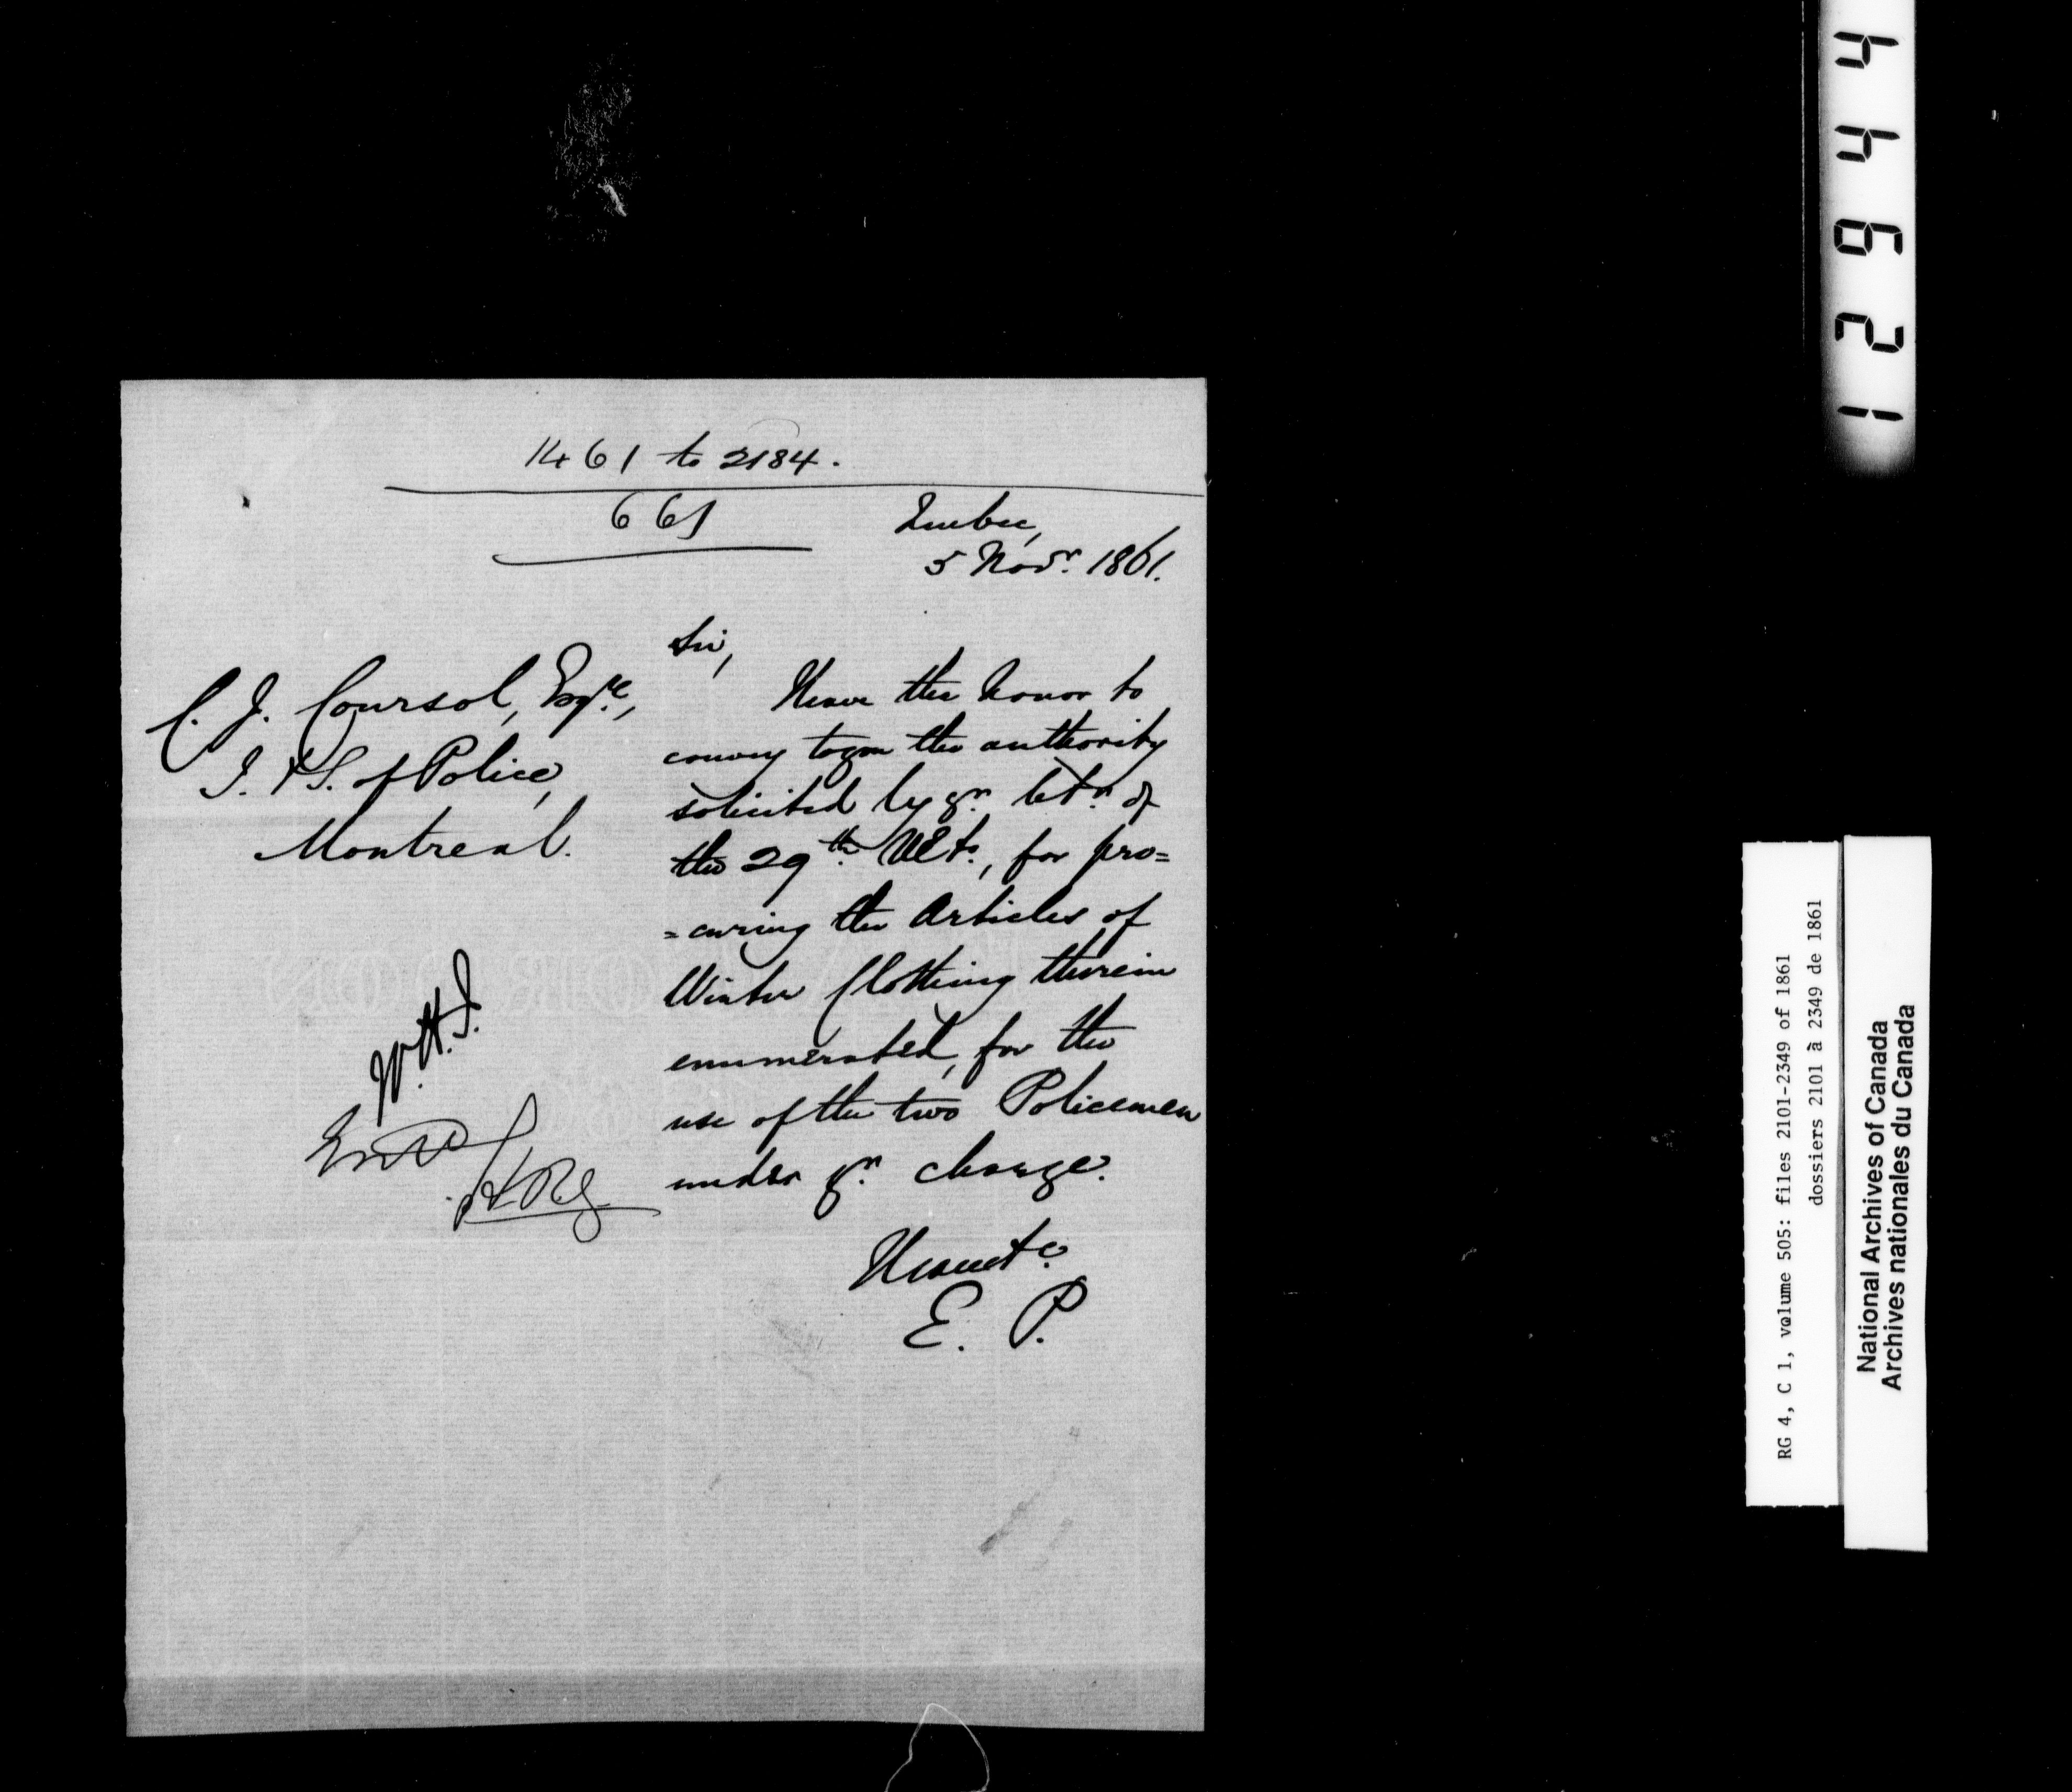 1461 to 2184.
661
Quebec,
5 Novr. 1861.
Sir,
C. J. Coursol, Esqre,
I. & S. of Police,
Montreal.
I have the honor to
convey to you the authority
solicited by yr. letr. of
the 29th. Ulto., for pro=
=curing the Articles of
Winter Clothing therein
enumerated, for the
use of the two Policemen
under yr. charge.
I have &c
E. P.
44921
RG 4, C 1, volume 505: files 2101-2349 of 1861
dossiers 2101 à 2349 de 1861
National Archives of Canada
Archives nationales du Canada